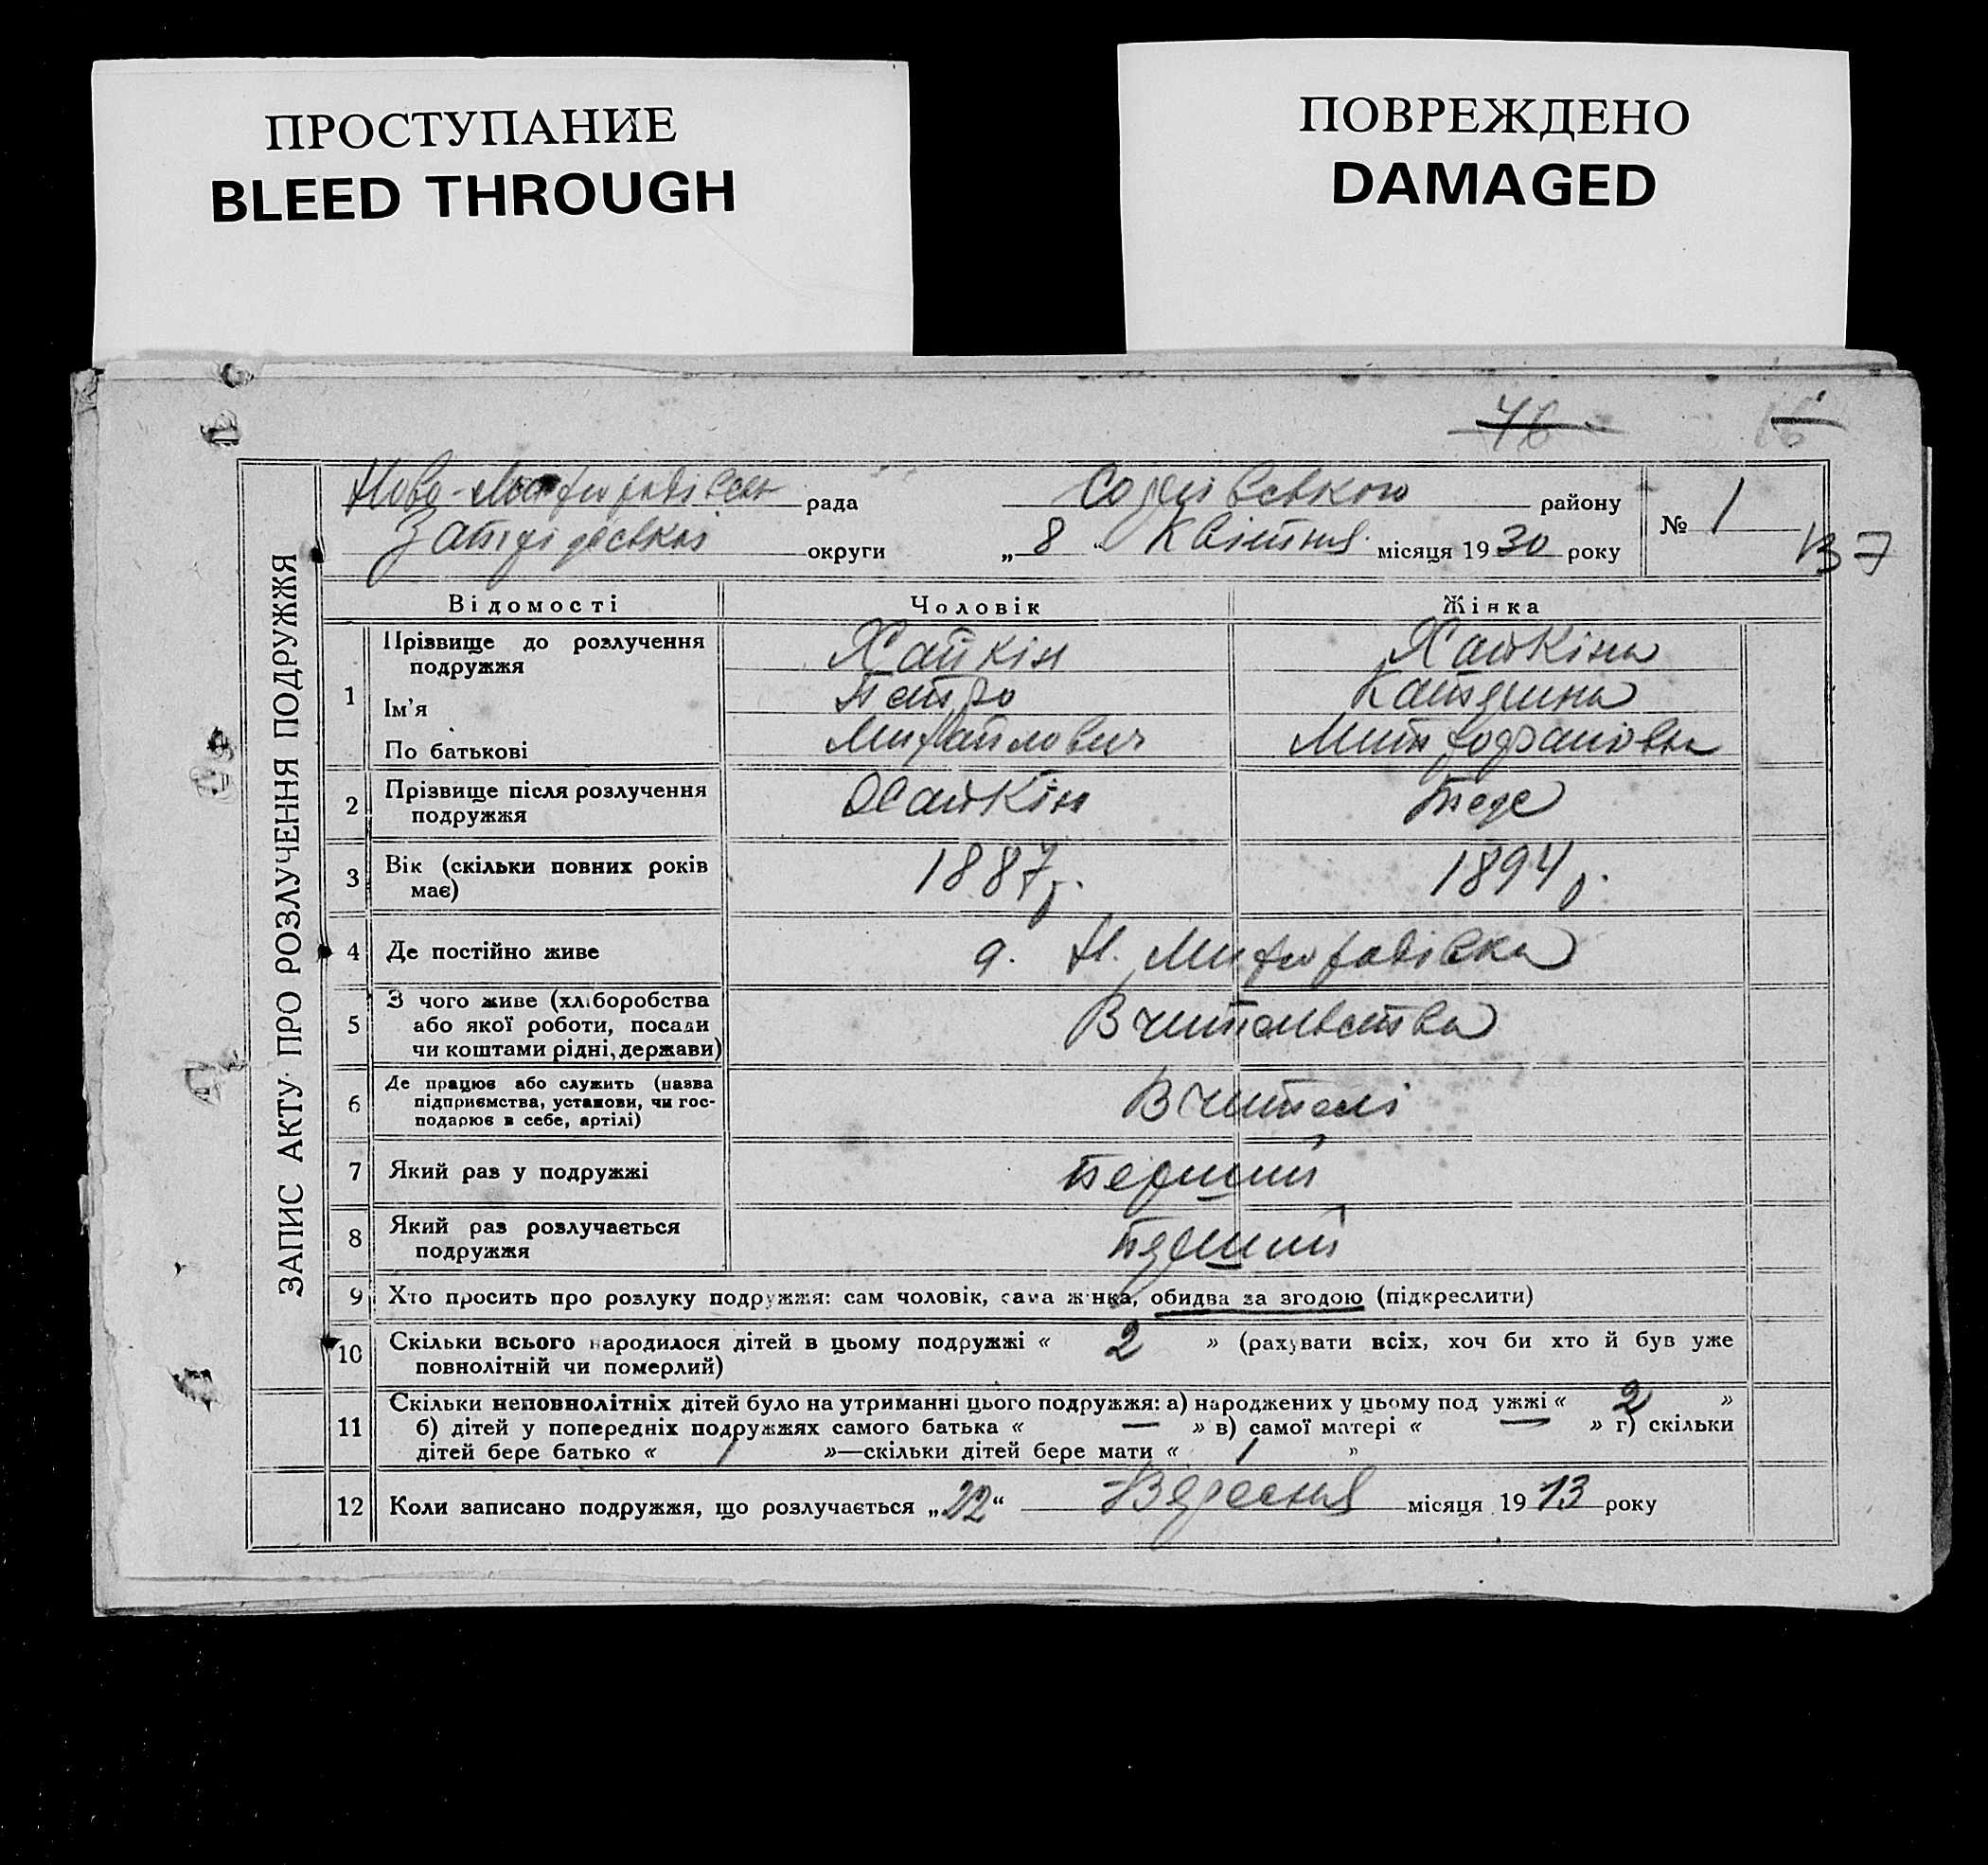 ПРОСТУПАНИЕ
BLEED THROUGH
ПОВРЕЖДЕНО
DAMAGED
46
ЗАПИС АКТУ ПРО РОЗЛУЧЕННЯ ПОДРУЖЖЯ
Ново- рада Софіївського району
Запорізької округи „ 8 " Квітня місяця 1930 року
№ 1
137
Відомості Чоловік Жінка
1 Прізвище до розлучення подружжя Хайкін Хайкіна
Ім'я Петро Катерина
По батькові Михайлович Митрофановна
2 Прізвище після розлучення подружжя Хайкін
3 Вік (скільки повних років має) 1887 р. 1894 р.
4 Де постійно живе Н.
5 З чого живе (хліборобства або якої роботи, посади чи коштами рідні, держави) Вчительства
6 Де працює або служить (назва підприємства, установи, чи господарює в себе, артілі) Вчителі
7 Який раз у подружжі Перший
8 Який раз розлучається подружжя Перший
9 Хто просить про розлуку подружжя: сам чоловік, сама жінка, обидва за згодою (підкреслити)
10 Скільки всього народилося дітей в цьому подружжі « 2 » (рахувати всіх, хоч би хто й був уже
повнолітній чи померлий)
11 Скільки неповнолітніх дітей було на утриманні цього подружжя: а) народжених у цьому подружжі « 2 »
б) дітей у попередніх подружжях самого батька « — » в) самої матері « — » г) скільки
дітей бере батько « 1 »—скільки дітей бере мати « 1 »
12 Коли записано подружжя, що розлучається „22“ Вересня місяця 1913 року